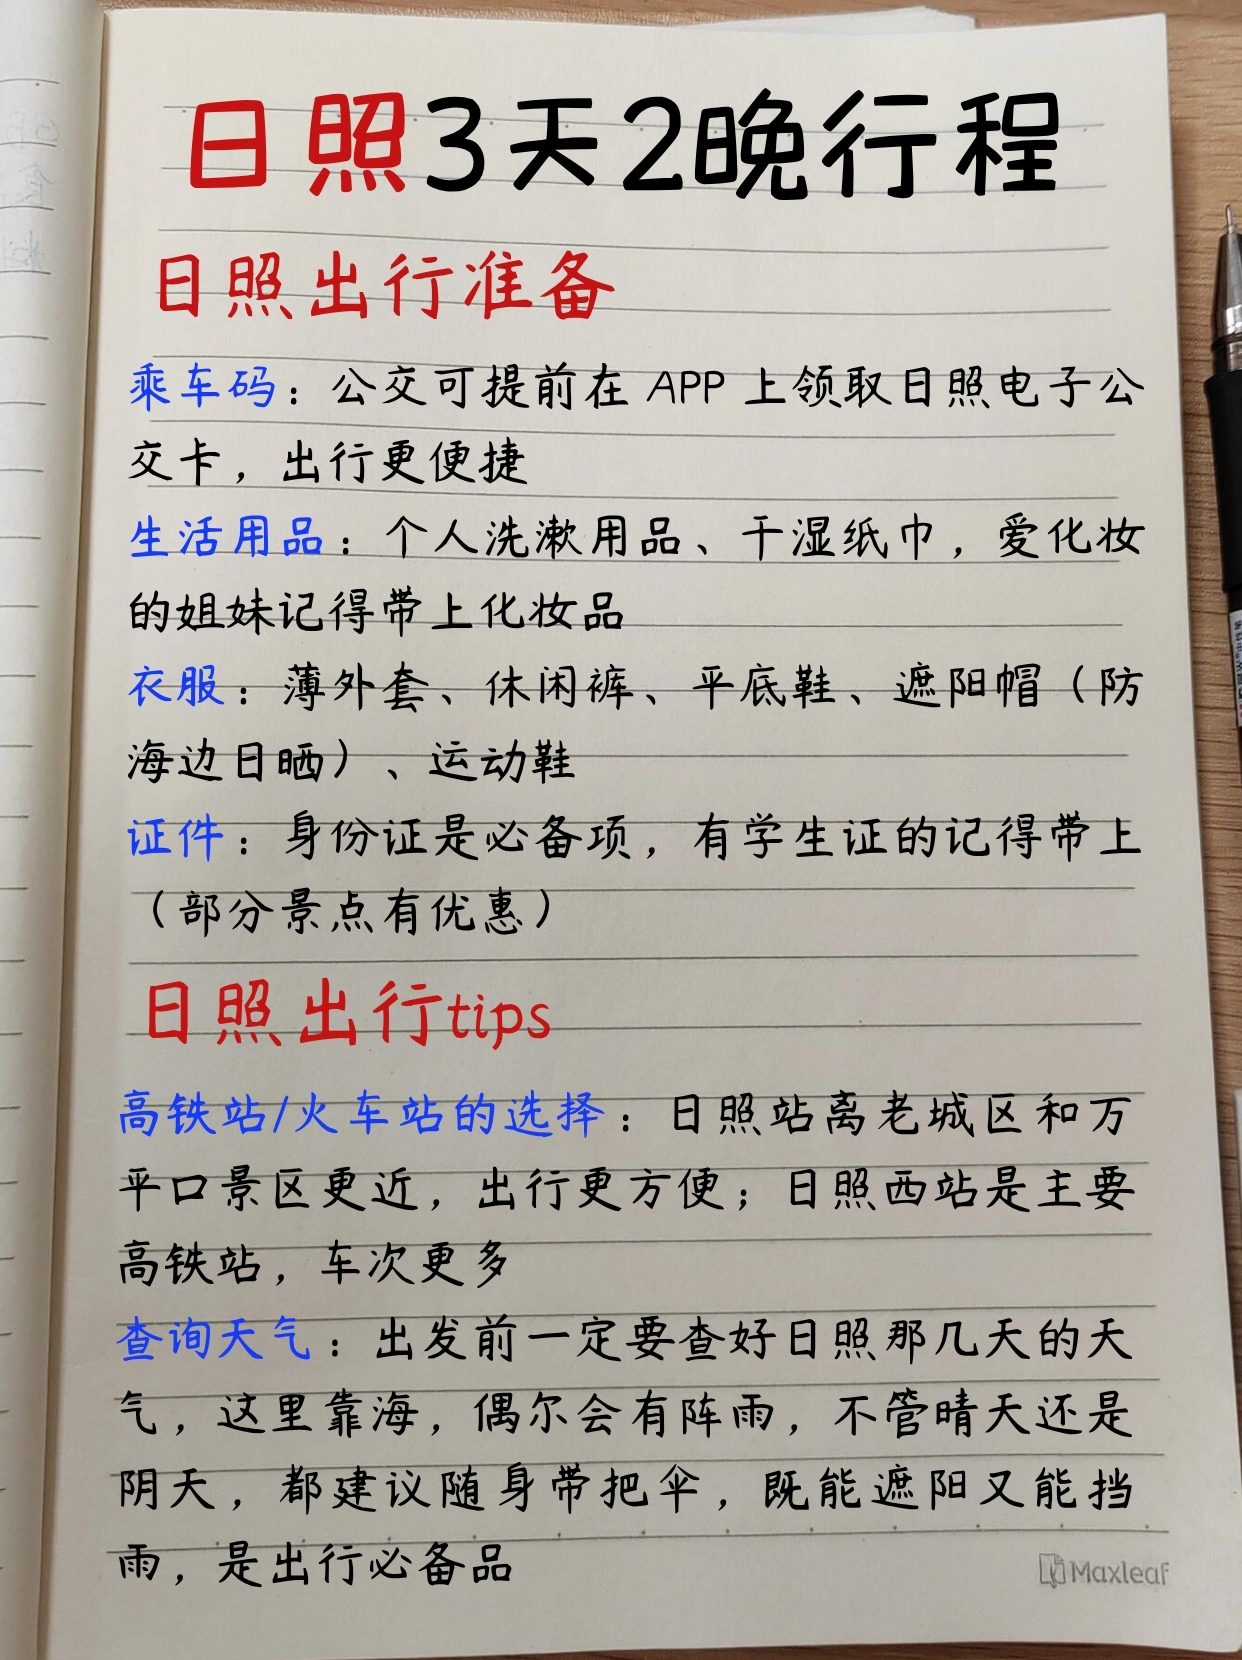 日照3天2晚行程
日照出行准备
乘车码：公交可提前在 APP 上领取日照电子公
交卡，出行更便捷
生活用品：个人洗漱用品、干湿纸巾，爱化妆
的姐妹记得带上化妆品
衣服：薄外套、休闲裤、平底鞋、遮阳帽（防
海边日晒）、运动鞋
证件：身份证是必备项，有学生证的记得带上
（部分景点有优惠）
日照出行tips
高铁站/火车站的选择：日照站离老城区和万
平口景区更近，出行更方便；日照西站是主要
高铁站，车次更多
查询天气：出发前一定要查好日照那几天的天
气，这里靠海，偶尔会有阵雨，不管晴天还是
阴天，都建议随身带把伞，既能遮阳又能挡
雨，是出行必备品
Maxleaf